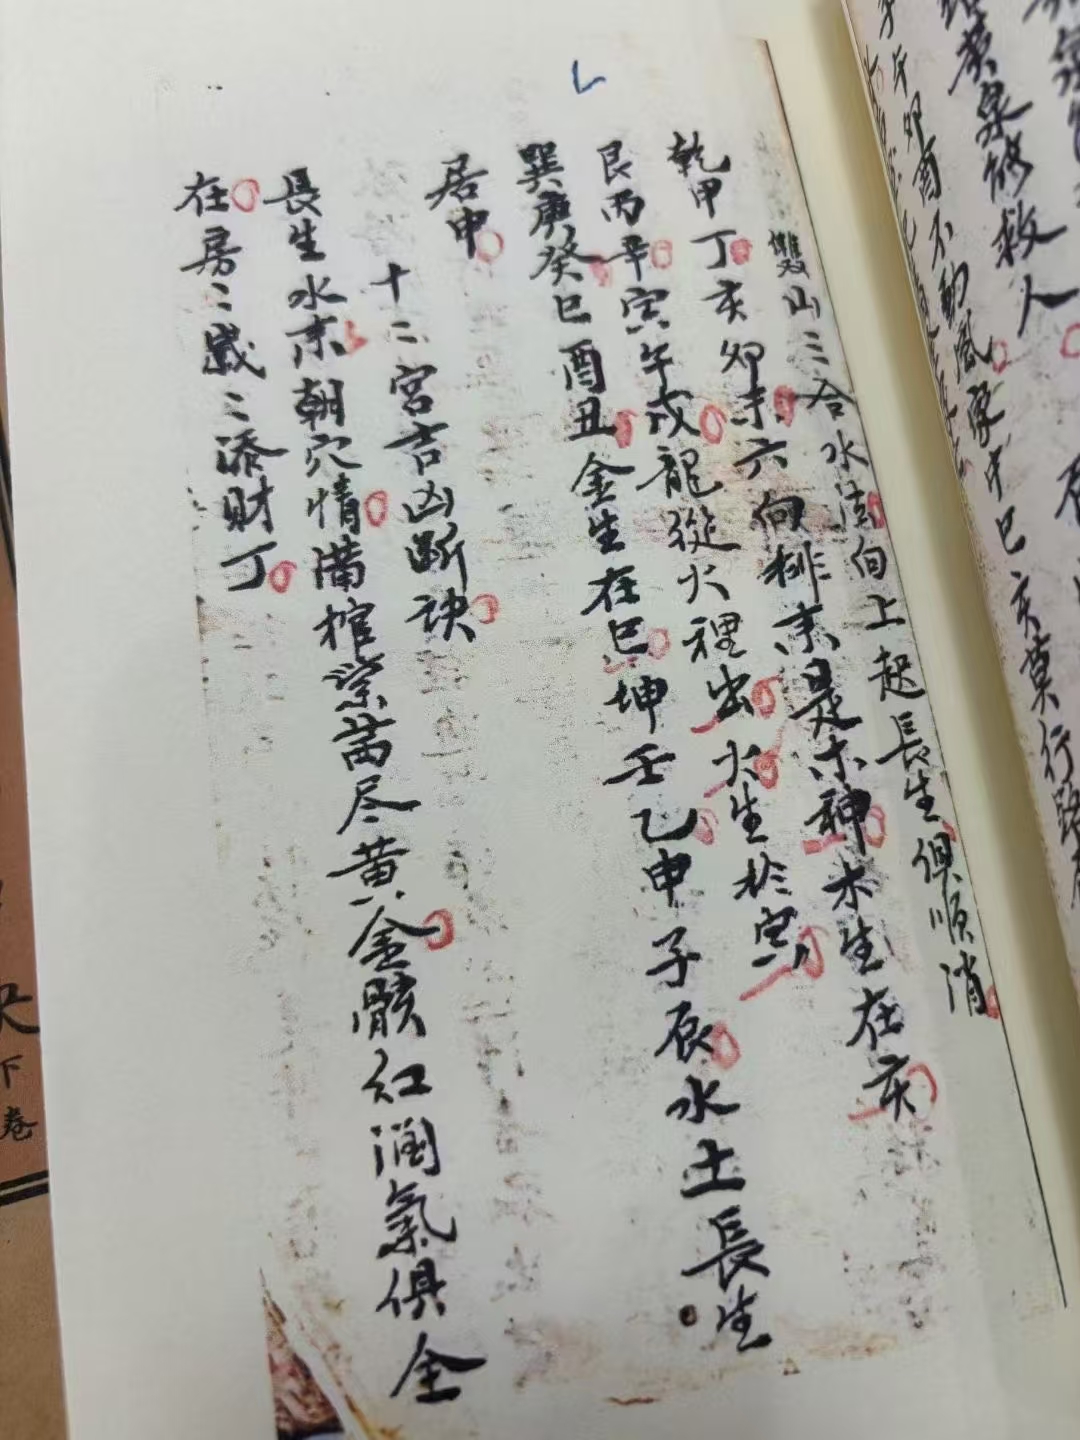 黃泉修救人
卯酉不動風
巳亥莫行路
雙山三合水法向上起長生俱順消
乾甲丁亥卯未六向排來是木神木生在亥
艮丙辛寅午戌龍從火裡出火生於寅
巽庚癸巳酉丑金生在巳坤壬乙申子辰水土長生
居申
十二宮吉凶斷訣
長生水來朝穴情滿棺紫茜尽黃金骸紅潤氣俱全
在房々歲々添財丁
下卷